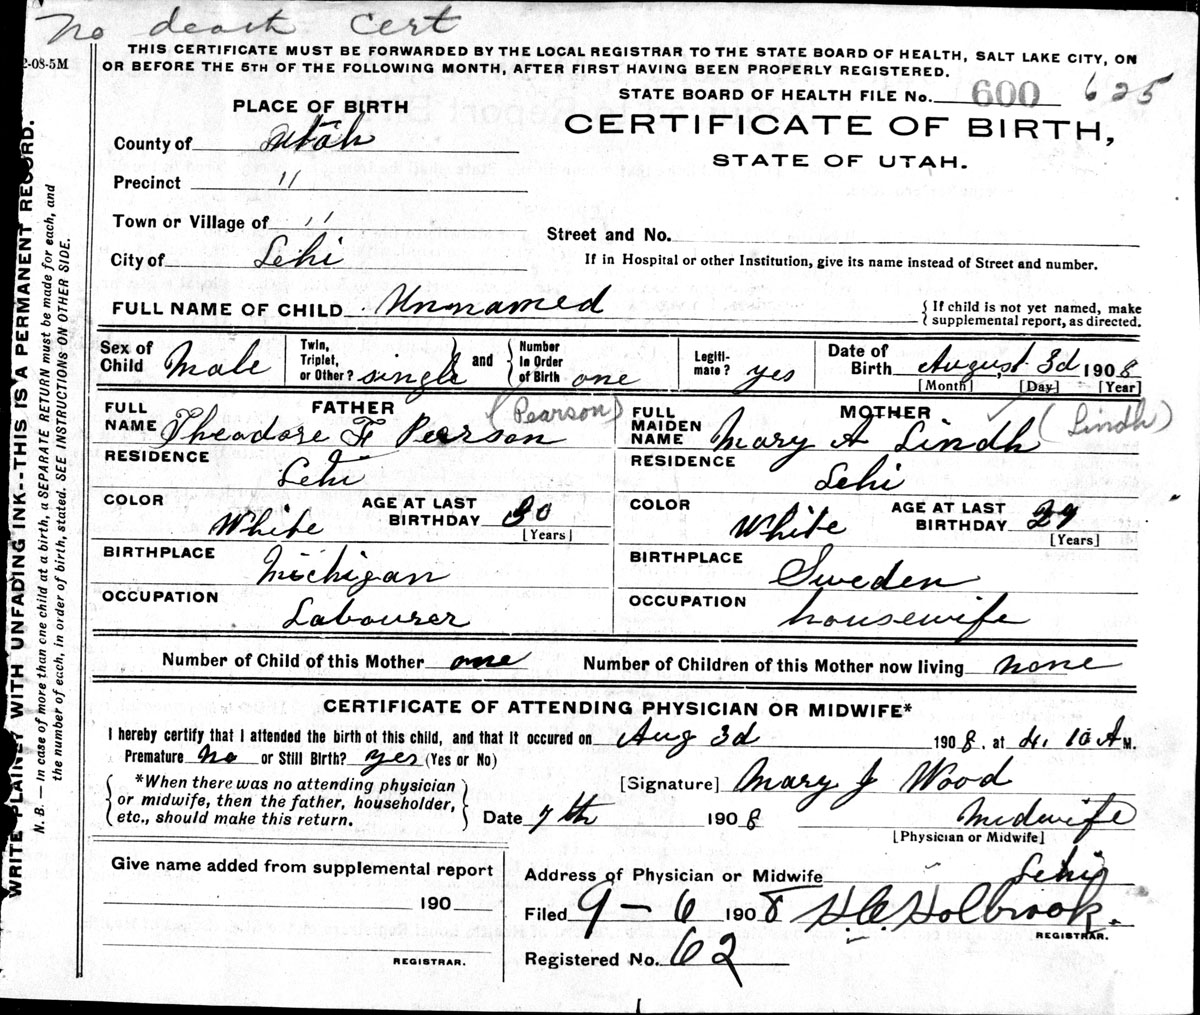 No death cert
2-08-5M
THIS CERTIFICATE MUST BE FORWARDED BY THE LOCAL REGISTRAR TO THE STATE BOARD OF HEALTH, SALT LAKE CITY, ON
OR BEFORE THE 5TH OF THE FOLLOWING MONTH, AFTER FIRST HAVING BEEN PROPERLY REGISTERED.
STATE BOARD OF HEALTH FILE No. 600 625
PLACE OF BIRTH
CERTIFICATE OF BIRTH,
STATE OF UTAH.
County of Utah
Precinct "
Town or Village of "
Street and No.
City of Lehi
If in Hospital or other Institution, give its name instead of Street and number.
FULL NAME OF CHILD Unnamed
{ If child is not yet named, make
supplemental report, as directed.
Sex of Child Male
Twin, Triplet, or Other? single and Number in Order of Birth one
Legiti-mate? yes
Date of Birth August 3d 1908
[Month] [Day] [Year]
FATHER
FULL NAME Theodore F Peerson (Pearson)
MOTHER
FULL MAIDEN NAME Mary A Lindh (Lindh)
RESIDENCE Lehi
RESIDENCE Lehi
COLOR White AGE AT LAST BIRTHDAY 30 [Years]
COLOR White AGE AT LAST BIRTHDAY 27 [Years]
BIRTHPLACE Michigan
BIRTHPLACE Sweden
OCCUPATION Labourer
OCCUPATION housewife
Number of Child of this Mother one Number of Children of this Mother now living none
CERTIFICATE OF ATTENDING PHYSICIAN OR MIDWIFE*
I hereby certify that I attended the birth of this child, and that it occured on Aug 3d 1908. at 4.10 A M.
Premature No or Still Birth? yes (Yes or No)
*When there was no attending physician
or midwife, then the father, householder,
etc., should make this return.
[Signature] Mary J Wood
Date 7th 1908 Midwife
[Physician or Midwife]
Give name added from supplemental report
190
REGISTRAR.
Address of Physician or Midwife Lehi
Filed 9-6 1908 H.C. Holbrook.
REGISTRAR.
Registered No. 62
WRITE PLAINLY WITH UNFADING INK--THIS IS A PERMANENT RECORD.
N. B. — In case of more than one child at a birth, a SEPARATE RETURN must be made for each, and
the number of each, in order of birth, stated. SEE INSTRUCTIONS ON OTHER SIDE.